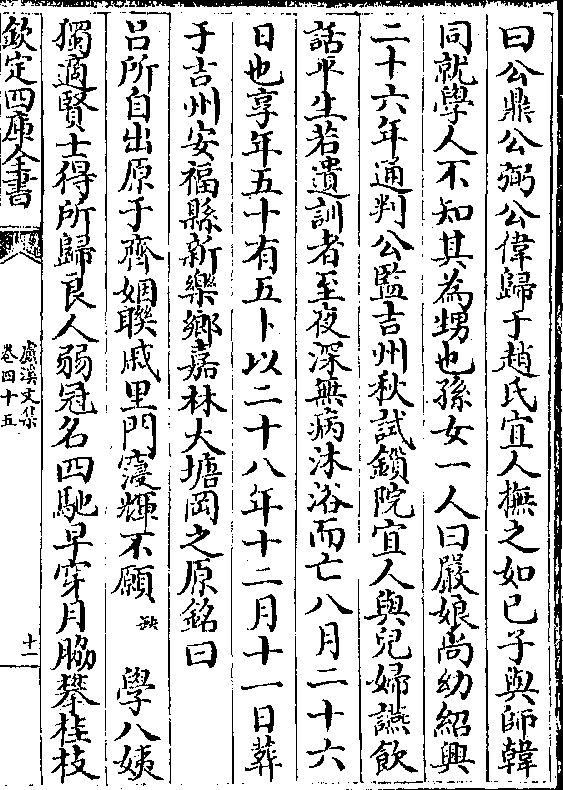 曰公鼎公弼公偉歸于趙氏宜人撫之如已子與師韓
同就學人不知其為甥也孫女一人曰嚴娘尚幼紹興
二十六年通判公監吉州秋試鎖院宜人與兒婦讌飲
話平生若遺訓者至夜深無病沐浴而亡八月二十六
日也享年五十有五卜以二十八年十二月十一日葬
于吉州安福縣新樂鄉嘉林大塘岡之原銘曰
呂所自出原于齊姻聯戚里門窽輝不願 缺 學八姨
獨適賢士得所歸良人弱冠名四馳早穿月脇攀桂枝
欽定四庫全書
盧溪文集
卷四十五
十一